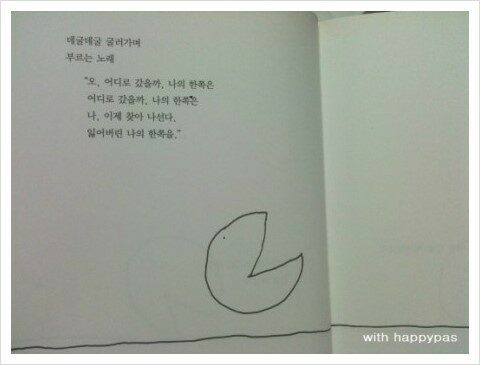 데굴데굴 굴러가며
부르는 노래
"오, 어디로 갔을까, 나의 한쪽은
어디로 갔을까, 나의 한쪽은
나, 이제 찾아 나선다.
잃어버린 나의 한쪽을."
with happypas